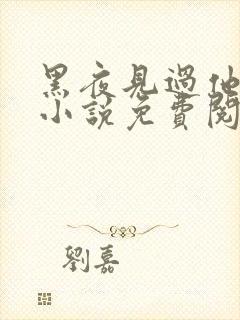 黑夜見過他
小說免費閱
劉嘉